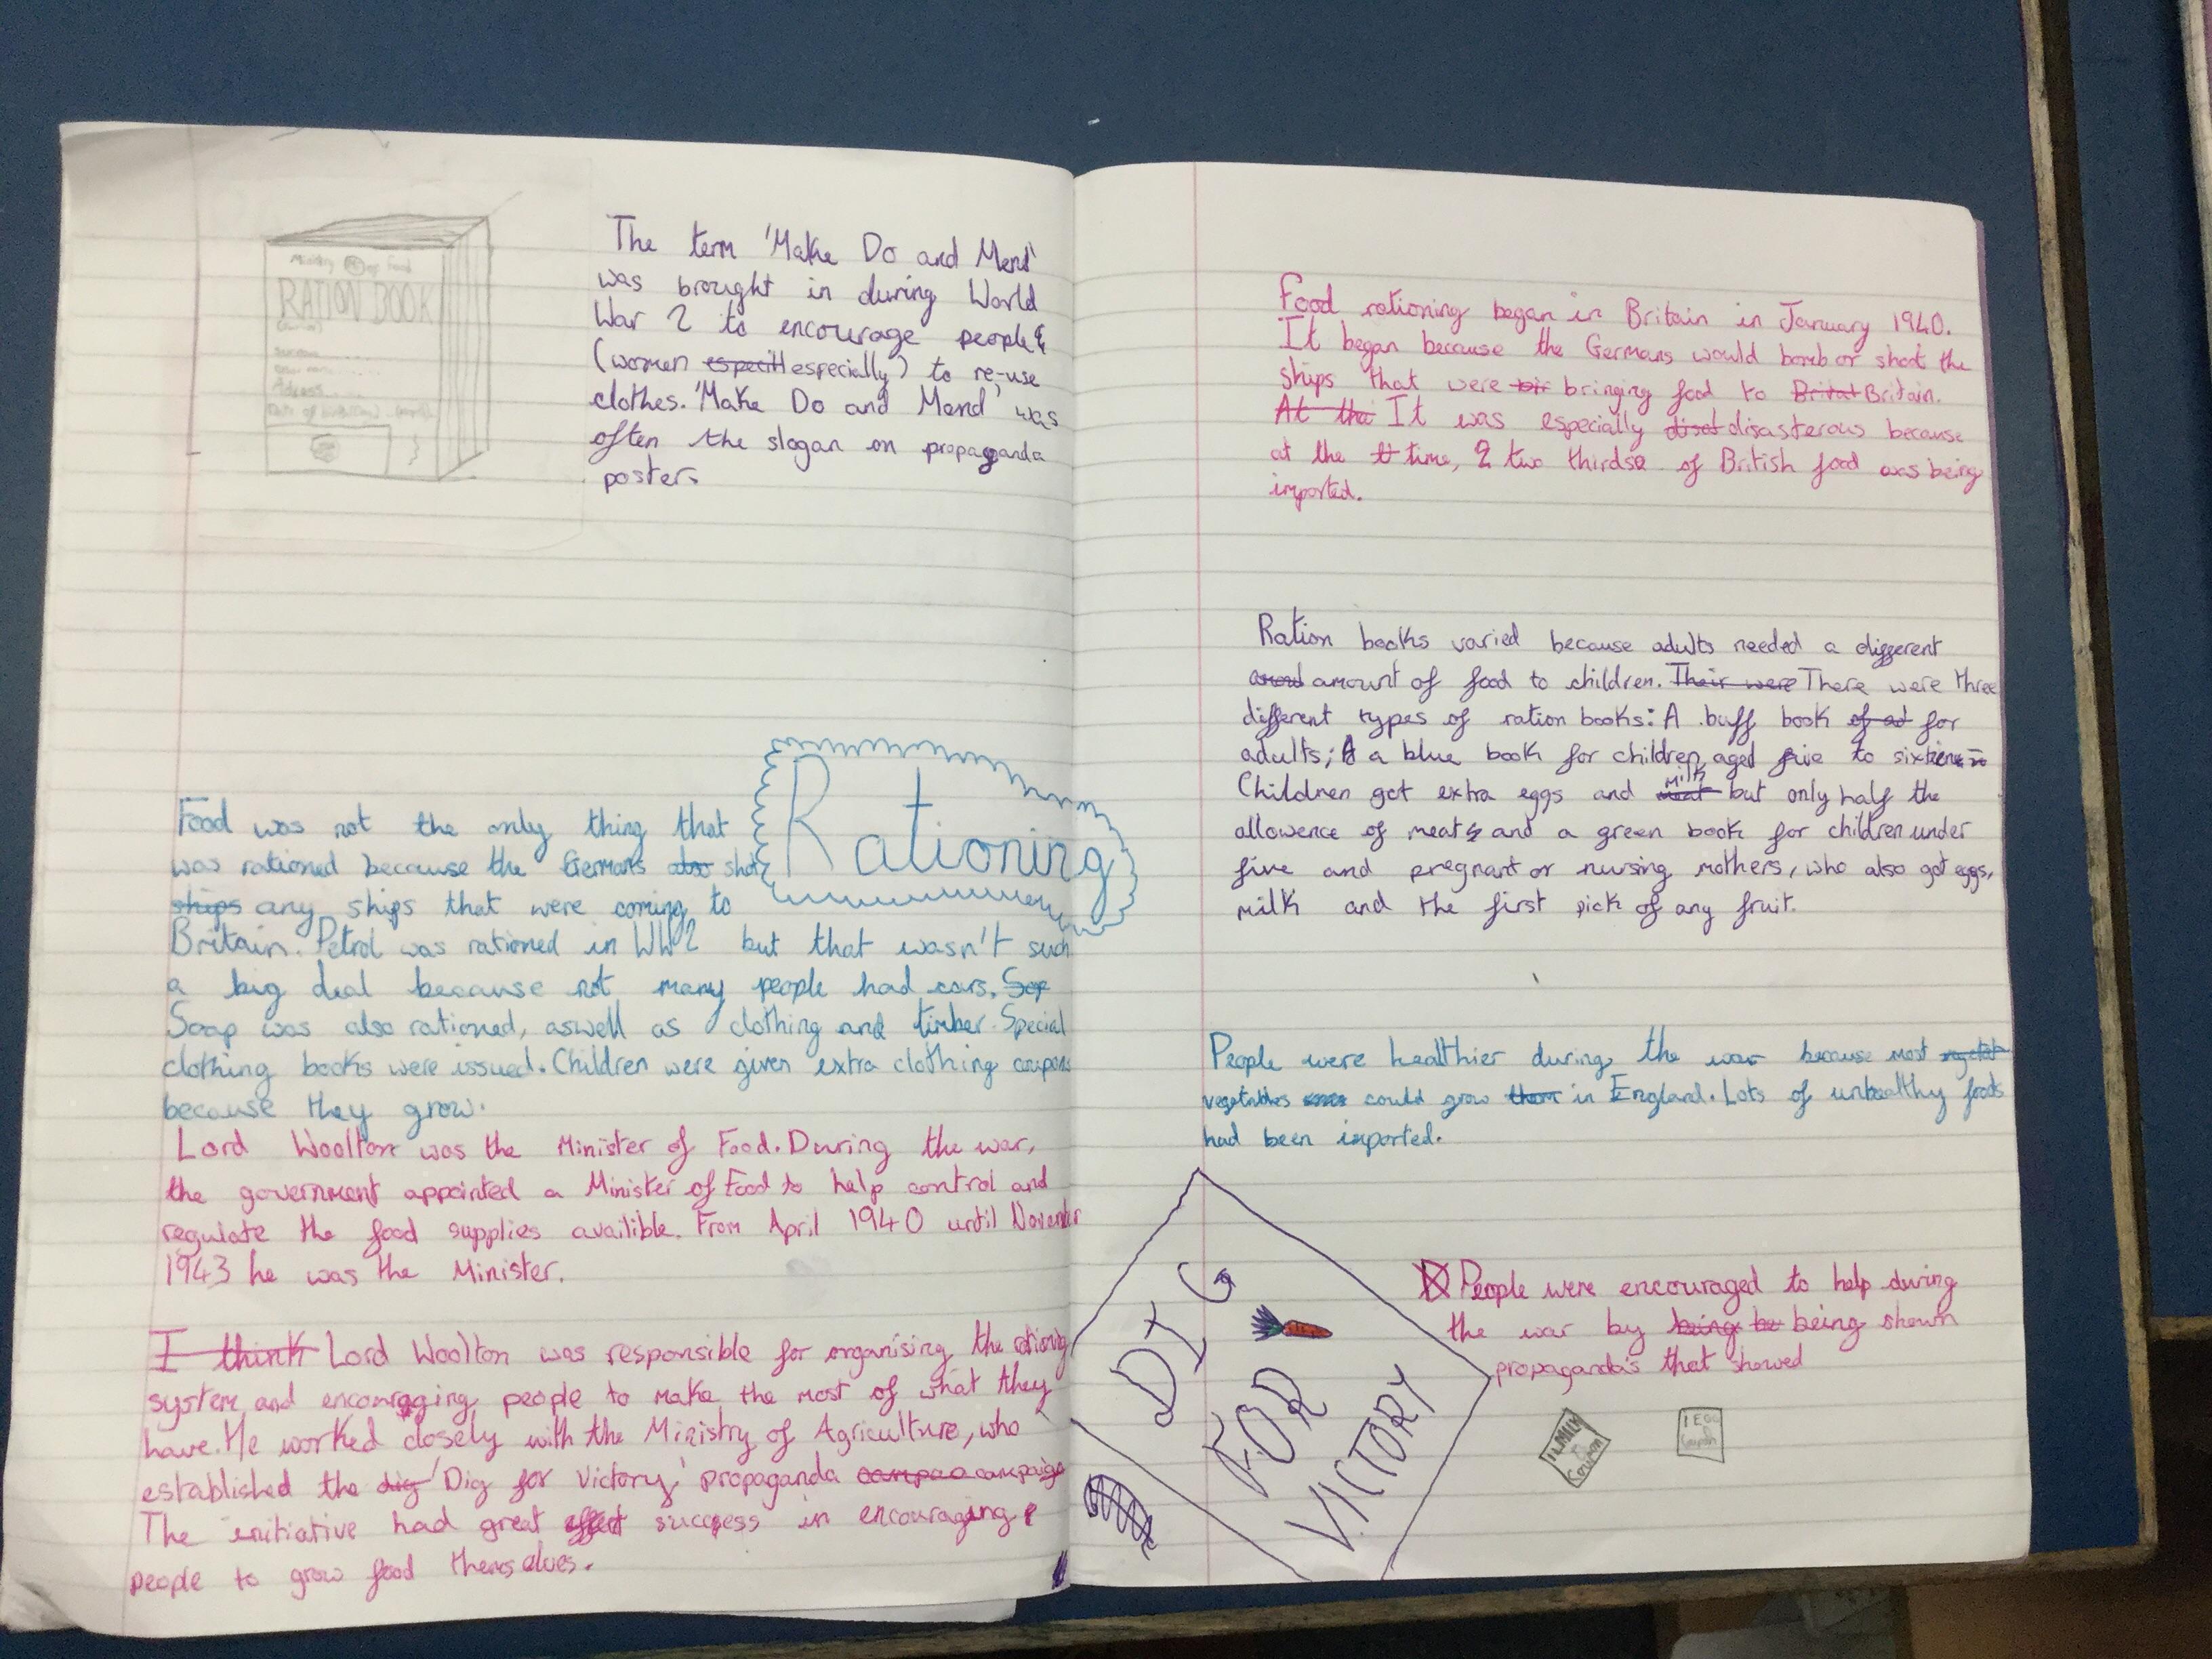 Ministry of Food
RATION BOOK
Surname
Adress
The term 'Make Do and Mend'
was brought in during World
War 2 to encourage people
(women especill especially) to re-use
clothes. 'Make Do and Mend' was
often the slogan on propaganda
posters
Rationing
Food was not the only thing that
was rationed because the Germans also shot
ships any ships that were coming to
Britain. Petrol was rationed in WW2 but that wasn't such
a big deal because not many people had cars. Sop
Soap was also rationed, aswell as clothing and timber. Special
clothing books were issued. Children were given extra clothing coupons
because they grow.
Lord Woolton was the Minister of Food. During the war,
the government appointed a Minister of Food to help control and
regulate the food supplies availible. From April 1940 until November
1943 he was the Minister.
I think Lord Woolton was responsible for organising the rationing
system and encouraging people to make the most of what they
have. He worked closely with the Ministry of Agriculture, who
established the dig 'Dig for Victory' propaganda campao campaign
The initiative had great effect success in encouraging
people to grow food themselves.
Food rationing began in Britain in January 1940.
It began because the Germans would bomb or shoot the
ships that were bir bringing food to Britat Britain.
At the It was especially disat disasterous because
at the tt time, 2 two thirds of British food was being
imported.
Ration books varied because adults needed a different
amount of food to children. Their were There were three
different types of ration books: A buff book of ad for
adults; A a blue book for children aged five to sixteen
Children got extra eggs and meat milk but only half the
allowence of meat and a green book for children under
five and pregnant or nursing mothers, who also got eggs,
milk and the first pick of any fruit.
People were healthier during the war because most vegetab
vegetables could grow them in England. Lots of unhealthy foods
had been imported.
People were encouraged to help during
the war by being be being shown
propaganda's that showed
DIG
FOR
VICTORY
MILK
Coupon
1 EGG
Coupon